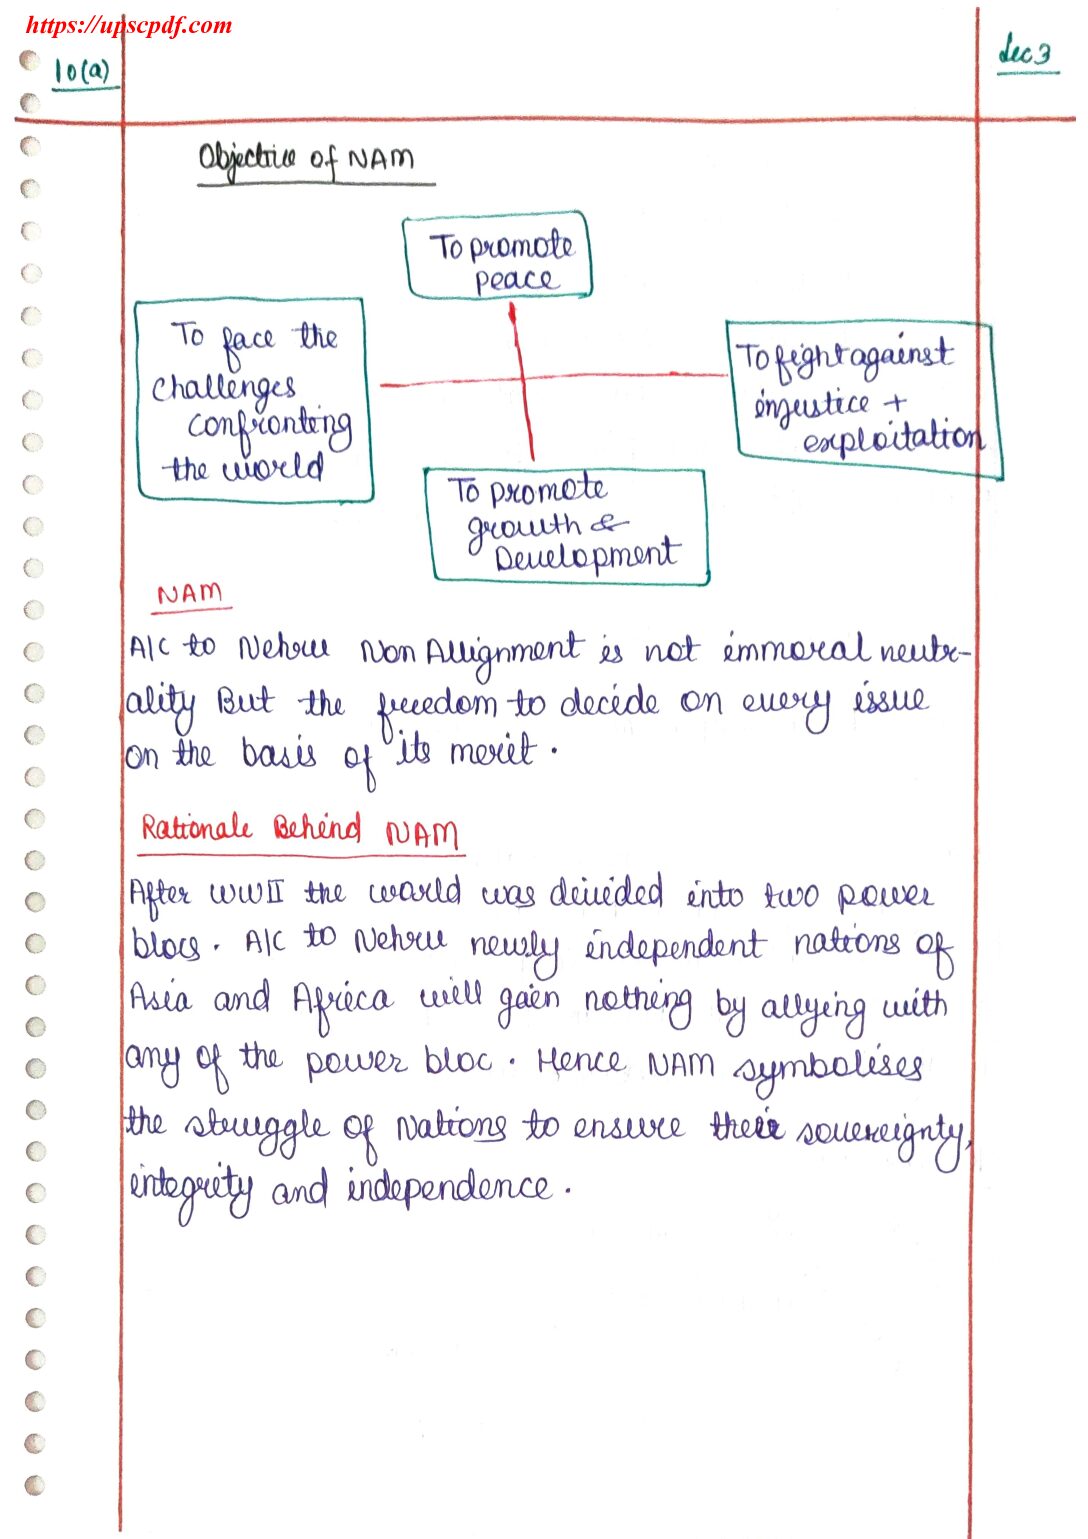 https://upscpdf.com
10(a)
Lec 3
Objective of NAM
To promote
peace
To face the
challenges
confronting
the world
To fight against
injustice +
exploitation
To promote
growth &
Development
NAM
A/C to Nehru Non Allignment is not immoral neutr-
ality But the freedom to decide on every issue
on the basis of its merit.
Rationale Behind NAM
After WWII the world was divided into two power
blocs. A/C to Nehru newly independent nations of
Asia and Africa will gain nothing by allying with
any of the power bloc. Hence NAM symbolises
the struggle of Nations to ensure their sovereignty,
integrity and independence.